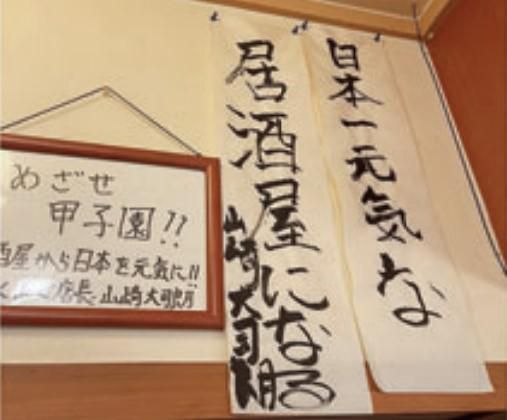 日本一元気な
居酒屋になる
山崎大司朗
めざせ
甲子園!!
酒屋から日本を元気に!!
店長 山崎大司朗